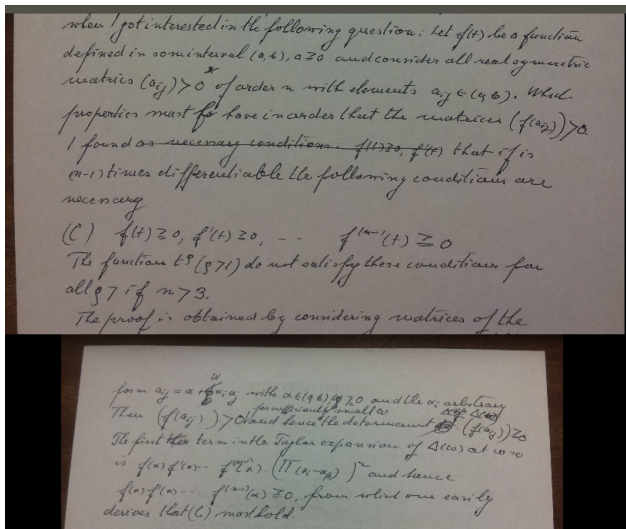 when I got interested in the following question: Let f(t) be a function
defined in som interval (a,b), a≥0 and consider all real symmetric
matrices (aij)>0* of order n with elements aij ∈ (a,b). Which
properties must f have in order that the matrices (f(aij))>0.
I found as necessary conditions f(t)≥0, f'(t) that if is
(n-1) times differentiable the following conditions are
necessary
(C) f(t)≥0, f'(t)≥0, -- f^(n-1)(t)≥0
The function t^ρ (ρ>1) do not satisfy these conditions for
all ρ>1 if n>3.
The proof is obtained by considering matrices of the
form aij = α + ω αi αj with α∈(a,b) ω≥0 and the αi arbitrary
Then (f(aij))>0 for sufficiently small ω and hence the determinant Δ(ω) (f(aij))≥0
The first term in the Taylor expansion of Δ(ω) at ω=0
is f(α) f'(α)-- f^(n-1)(α). (Π(αi-αk))² and hence
f(α) f'(α)-- f^(n-1)(α)≥0, from which one easily
derives that (C) must hold.